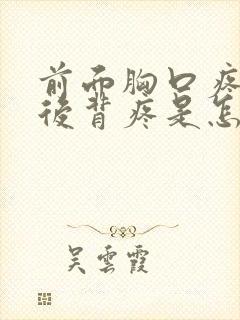 前而胸口疼
後背疼是怎
吴雲霞